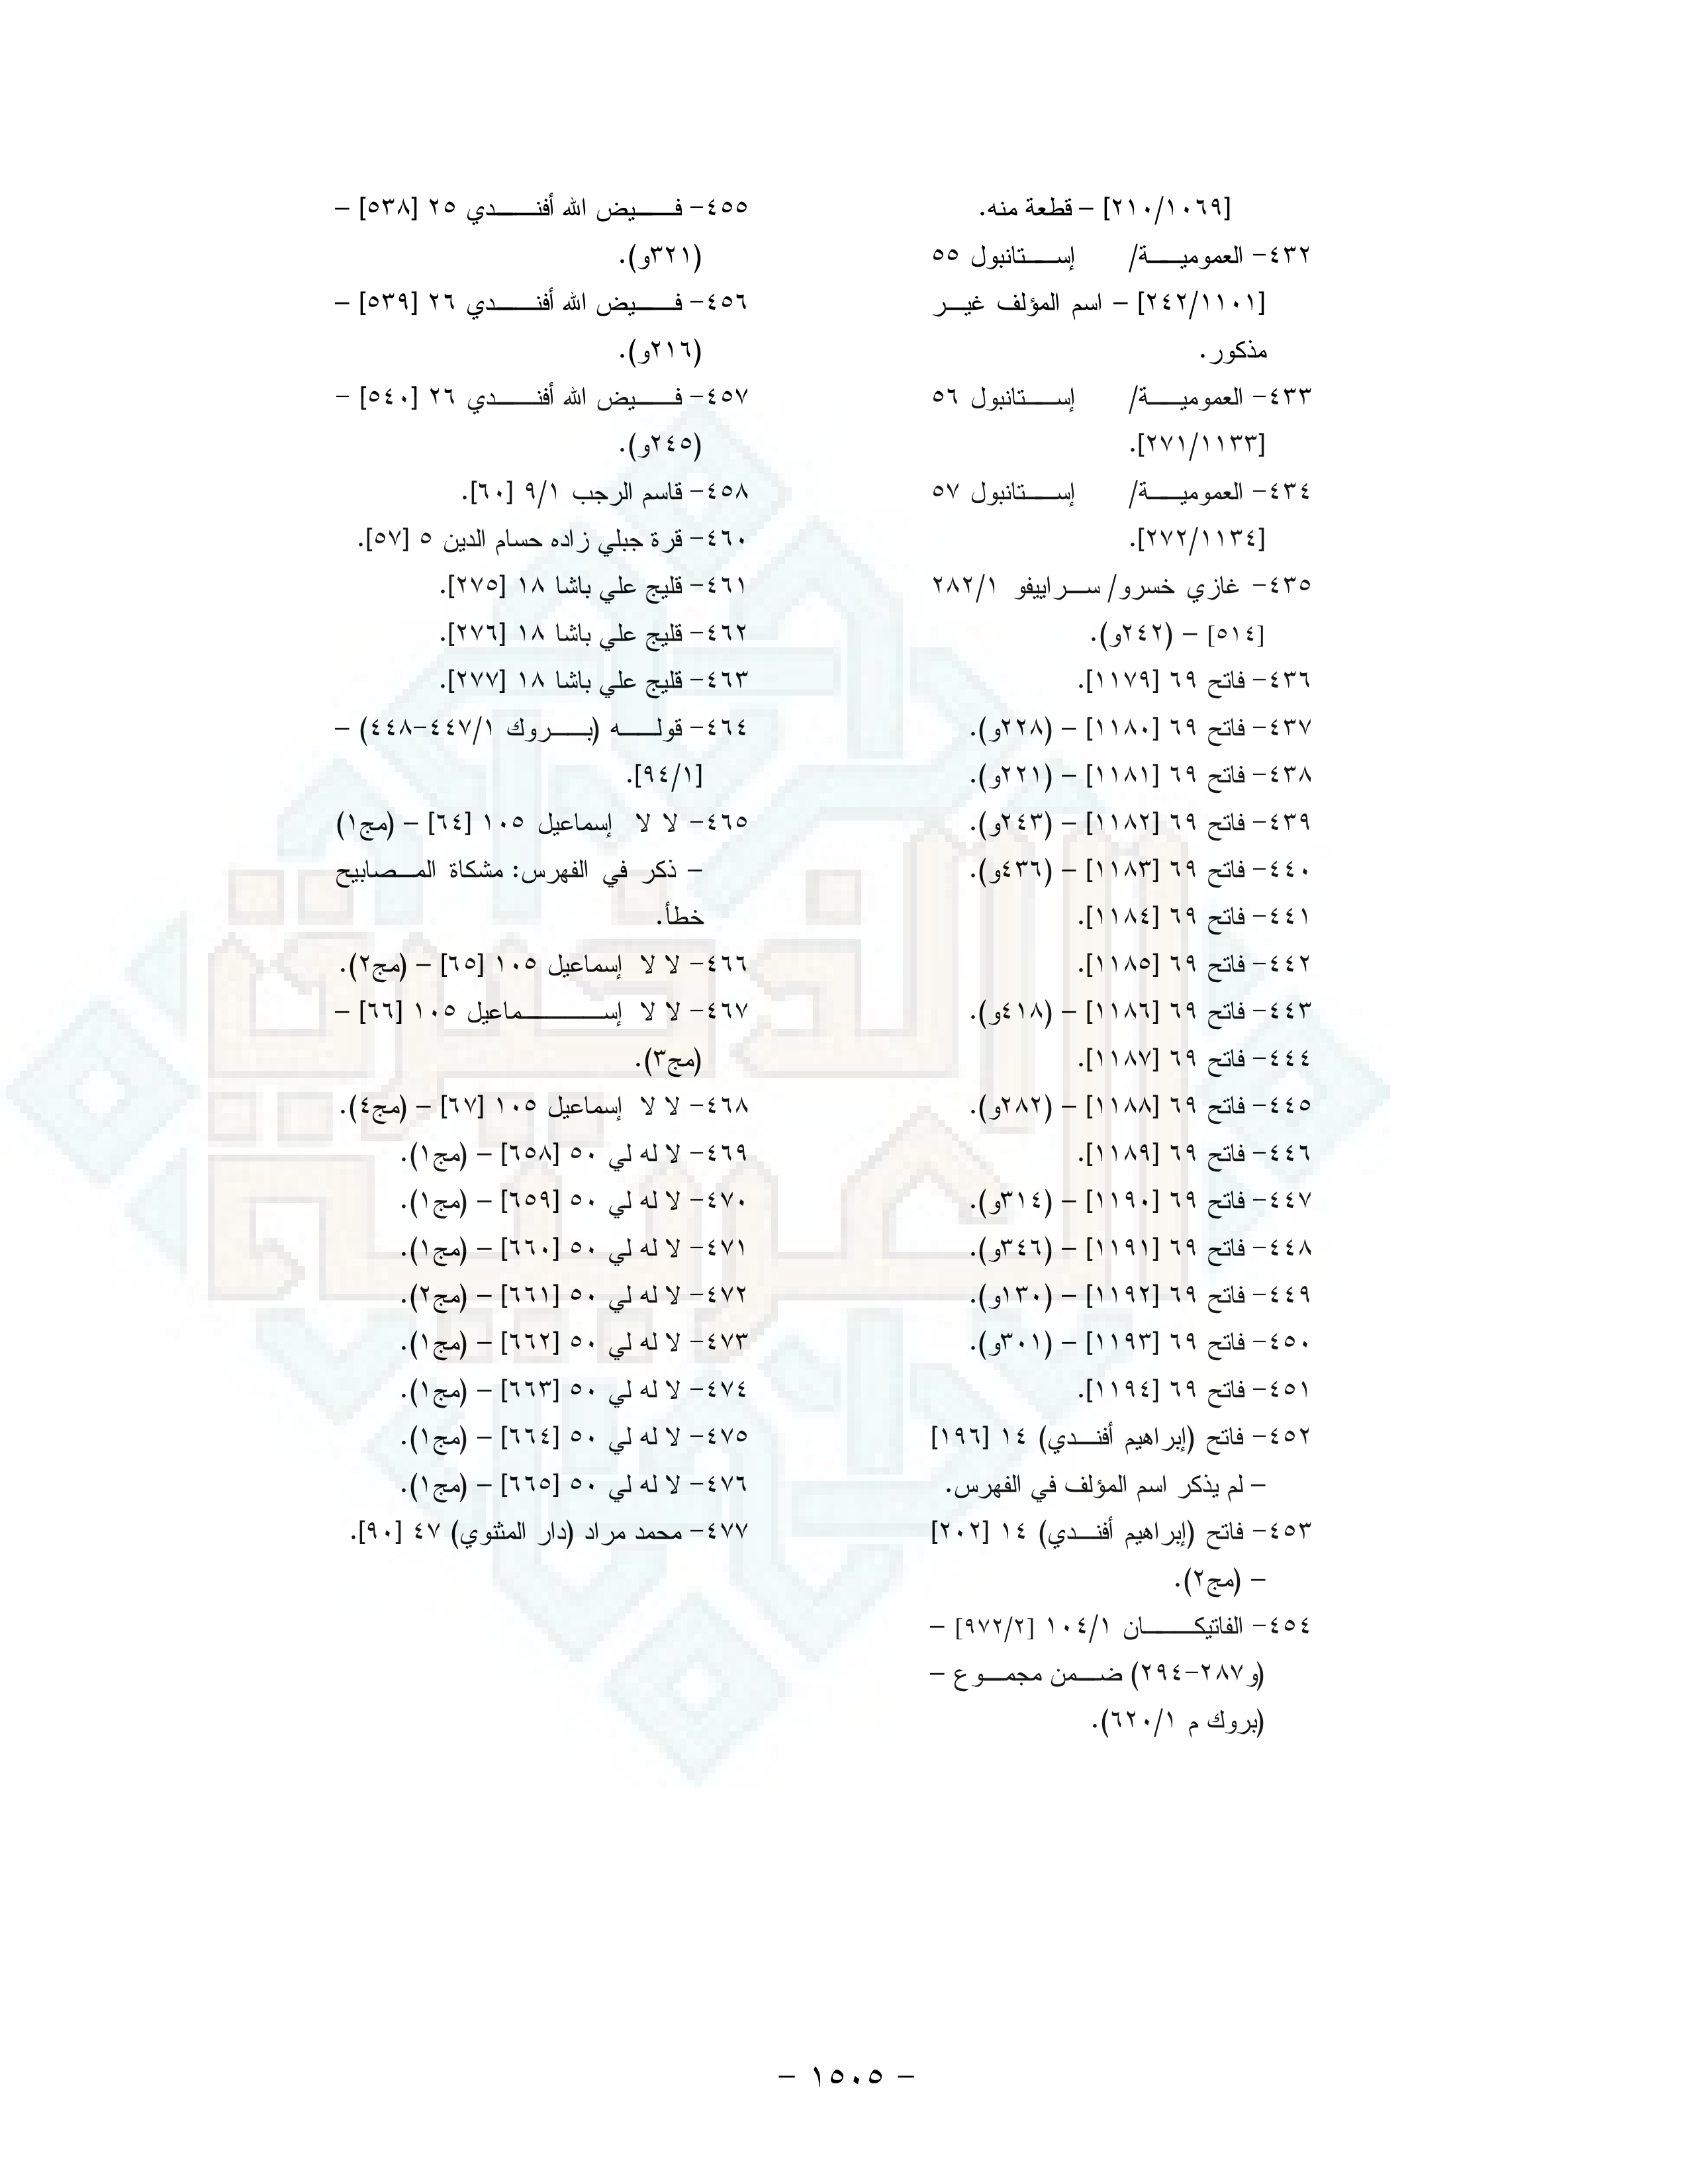 [٢١٠/١٠٦٩] – قطعة منه.
٤٣٢- العمومية/ إستانبول ٥٥
[٢٤٢/١١٠١] – اسم المؤلف غير
مذكور.
٤٣٣- العمومية/ إستانبول ٥٦
[٢٧١/١١٣٣].
٤٣٤- العمومية/ إستانبول ٥٧
[٢٧٢/١١٣٤].
٤٣٥- غازي خسرو/ سراييفو ٢٨٢/١
[٥١٤] – (٢٤٢و).
٤٣٦- فاتح ٦٩ [١١٧٩].
٤٣٧- فاتح ٦٩ [١١٨٠] – (٢٢٨و).
٤٣٨- فاتح ٦٩ [١١٨١] – (٢٢١و).
٤٣٩- فاتح ٦٩ [١١٨٢] – (٢٤٣و).
٤٤٠- فاتح ٦٩ [١١٨٣] – (٤٣٦و).
٤٤١- فاتح ٦٩ [١١٨٤].
٤٤٢- فاتح ٦٩ [١١٨٥].
٤٤٣- فاتح ٦٩ [١١٨٦] – (٤١٨و).
٤٤٤- فاتح ٦٩ [١١٨٧].
٤٤٥- فاتح ٦٩ [١١٨٨] – (٢٨٢و).
٤٤٦- فاتح ٦٩ [١١٨٩].
٤٤٧- فاتح ٦٩ [١١٩٠] – (٣١٤و).
٤٤٨- فاتح ٦٩ [١١٩١] – (٣٤٦و).
٤٤٩- فاتح ٦٩ [١١٩٢] – (١٣٠و).
٤٥٠- فاتح ٦٩ [١١٩٣] – (٣٠١و).
٤٥١- فاتح ٦٩ [١١٩٤].
٤٥٢- فاتح (إبراهيم أفندي) ١٤ [١٩٦]
– لم يذكر اسم المؤلف في الفهرس.
٤٥٣- فاتح (إبراهيم أفندي) ١٤ [٢٠٢]
– (مج٢).
٤٥٤- الفاتيكان ١٠٤/١ [٩٧٢/٢] –
(و٢٨٧-٢٩٤) ضمن مجموع –
(بروك م ٦٢٠/١).
٤٥٥- فيض الله أفندي ٢٥ [٥٣٨] –
(٣٢١و).
٤٥٦- فيض الله أفندي ٢٦ [٥٣٩] –
(٢١٦و).
٤٥٧- فيض الله أفندي ٢٦ [٥٤٠] –
(٢٤٥و).
٤٥٨- قاسم الرجب ٩/١ [٦٠].
٤٦٠- قرة جبلي زاده حسام الدين ٥ [٥٧].
٤٦١- قليج علي باشا ١٨ [٢٧٥].
٤٦٢- قليج علي باشا ١٨ [٢٧٦].
٤٦٣- قليج علي باشا ١٨ [٢٧٧].
٤٦٤- قوله (بروك ٤٤٧/١-٤٤٨) –
[٩٤/١].
٤٦٥- لا لا إسماعيل ١٠٥ [٦٤] – (مج١)
– ذكر في الفهرس: مشكاة المصابيح
خطأ.
٤٦٦- لا لا إسماعيل ١٠٥ [٦٥] – (مج٢).
٤٦٧- لا لا إسماعيل ١٠٥ [٦٦] –
(مج٣).
٤٦٨- لا لا إسماعيل ١٠٥ [٦٧] – (مج٤).
٤٦٩- لا له لي ٥٠ [٦٥٨] – (مج١).
٤٧٠- لا له لي ٥٠ [٦٥٩] – (مج١).
٤٧١- لا له لي ٥٠ [٦٦٠] – (مج١).
٤٧٢- لا له لي ٥٠ [٦٦١] – (مج٢).
٤٧٣- لا له لي ٥٠ [٦٦٢] – (مج١).
٤٧٤- لا له لي ٥٠ [٦٦٣] – (مج١).
٤٧٥- لا له لي ٥٠ [٦٦٤] – (مج١).
٤٧٦- لا له لي ٥٠ [٦٦٥] – (مج١).
٤٧٧- محمد مراد (دار المثنوي) ٤٧ [٩٠].
الذخيرة
العربية
– ١٥٠٥ –